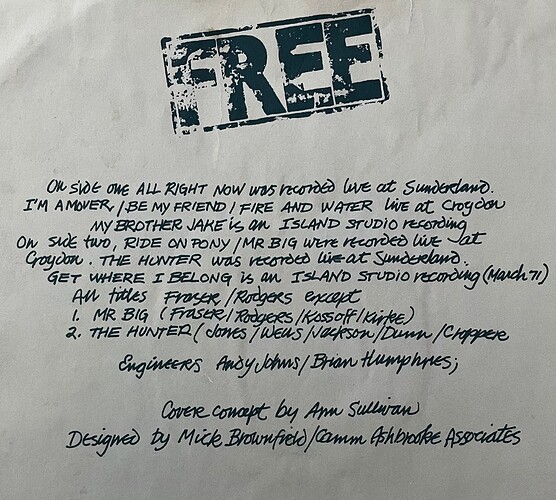 FREE
On side one ALL RIGHT NOW was recorded live at Sunderland.
I'M A MOVER, / BE MY FRIEND / FIRE AND WATER live at Croydon
MY BROTHER JAKE is an ISLAND STUDIO recording
On side two, RIDE ON PONY / MR BIG were recorded live at
Croydon. THE HUNTER was recorded live at Sunderland.
GET WHERE I BELONG is an ISLAND STUDIO recording (March 71)
All titles Fraser / Rodgers except
1. MR BIG (Fraser / Rodgers / Kossoff / Kirke)
2. THE HUNTER (Jones / Wells / Jackson / Dunn / Cropper
Engineers Andy Johns / Brian Humphries;
Cover concept by Ann Sullivan
Designed by Mick Brownfield / Camm Ashbrooke Associates